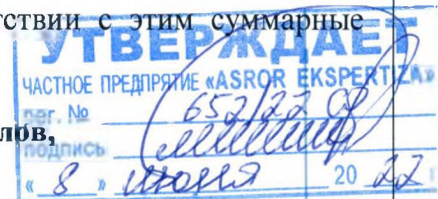 тствии с этим суммарные
УТВЕРЖДАЕТ
ЧАСТНОЕ ПРЕДПРЯТИЕ «ASROR EKSPERTIZA»
рег. № 652/22
лов,
подпись
« 8 » июня 20 22